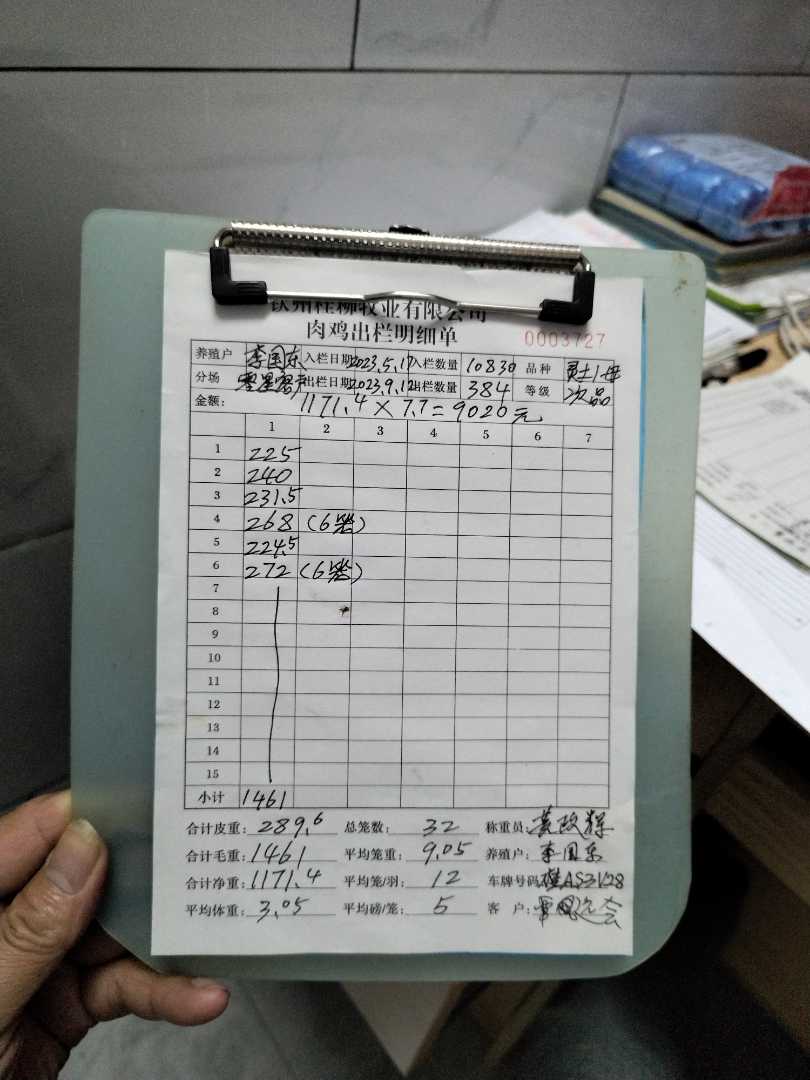 钦州桂柳牧业有限公司
肉鸡出栏明细单 0003727
养殖户 李国东 入栏日期 2023.5.17 入栏数量 10830 品种
分场 零星客户 出栏日期 2023.9.12 出栏数量 384 等级 次品
金额: 1171.4×7.7=9020元
1 2 3 4 5 6 7
1 225
2 240
3 231.5
4 268 (6筐)
5 224.5
6 272 (6筐)
7
8
9
10
11
12
13
14
15
小计 1461
合计皮重: 289.6 总笼数: 32 称重员:
合计毛重: 1461 平均笼重: 9.05 养殖户: 李国东
合计净重: 1171.4 平均笼/羽: 12 车牌号码:
平均体重: 3.05 平均磅/笼: 5 客 户: